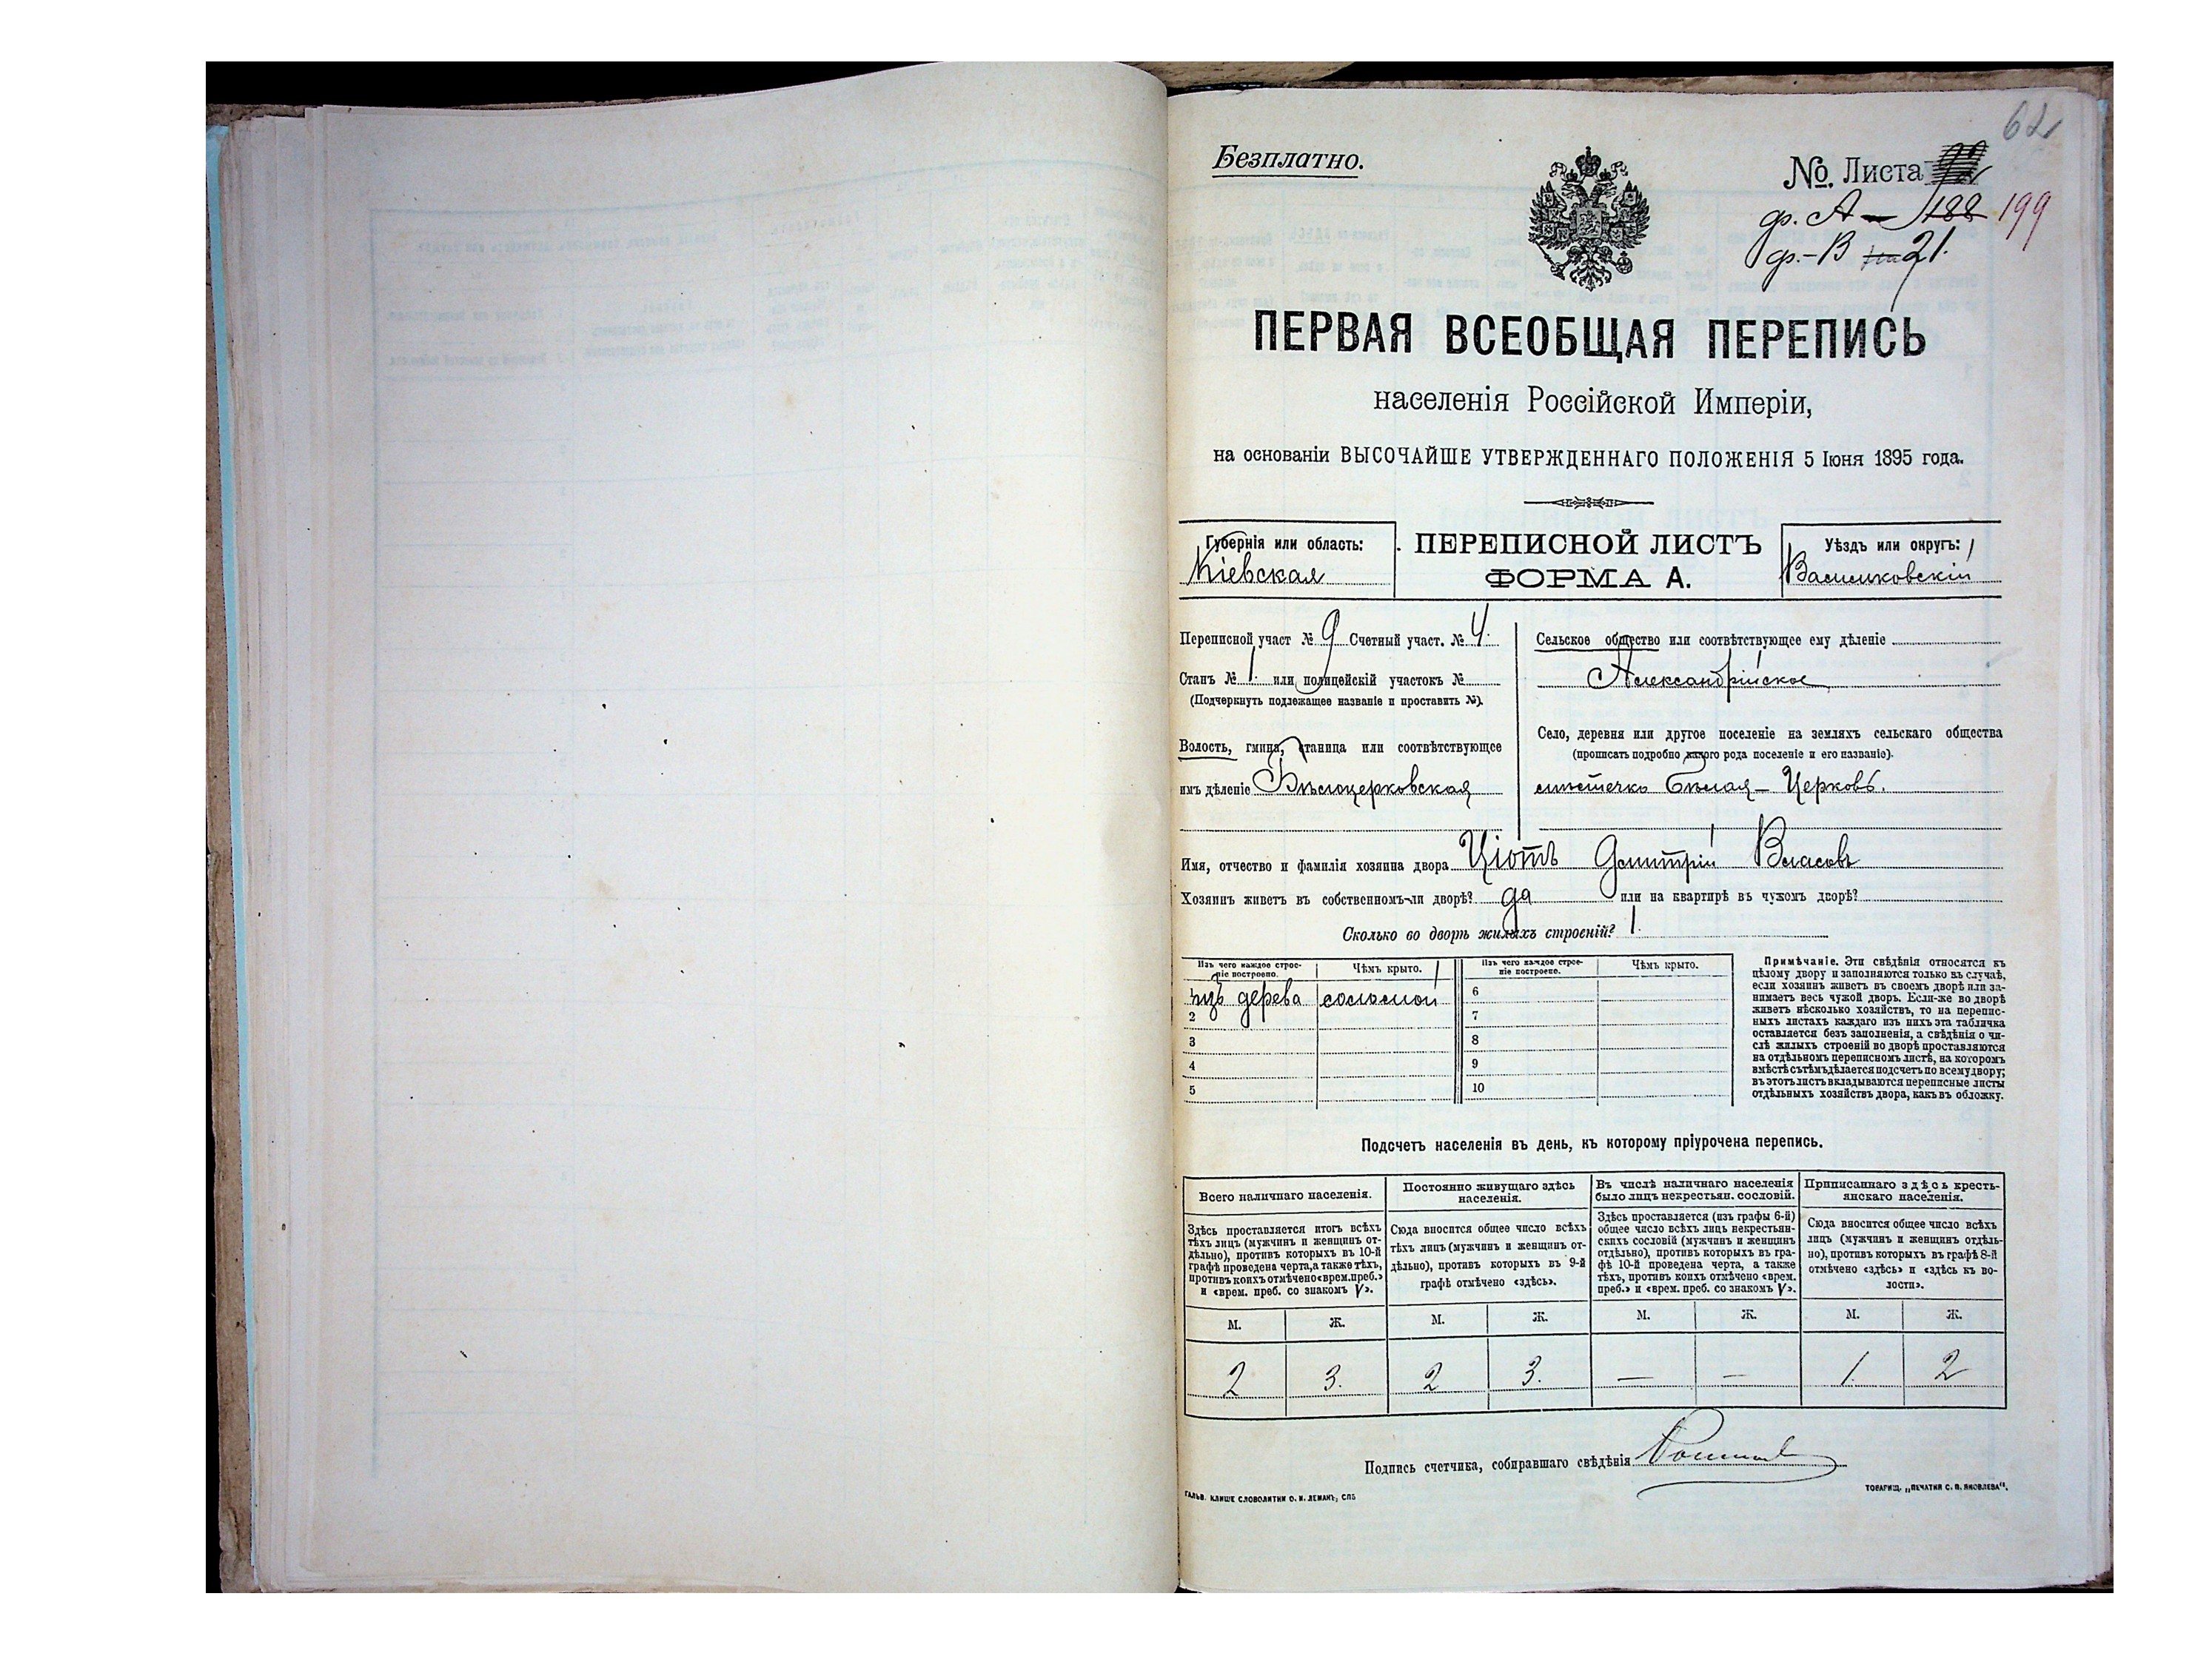 62
Безплатно.
№ Листа
ф. А — 188 199
ф.-В 21.
ПЕРВАЯ ВСЕОБЩАЯ ПЕРЕПИСЬ
населенія Россійской Имперіи,
на основаніи ВЫСОЧАЙШЕ УТВЕРЖДЕННАГО ПОЛОЖЕНІЯ 5 Іюня 1895 года.
Губернія или область:
Кіевская
ПЕРЕПИСНОЙ ЛИСТЪ
ФОРМА А.
Уѣздъ или округъ:
Васильковскій
Переписной участ № 9 Счетный участ. № 4.
Станъ № 1. или полицейскій участокъ №
(Подчеркнуть подлежащее названіе и проставить №).
Волость, гмина, станица или соотвѣтствующее
имъ дѣленіе Бѣлоцерковская
Сельское общество или соотвѣтствующее ему дѣленіе
Александрійское
Село, деревня или другое поселеніе на земляхъ сельскаго общества
(прописать подробно какого рода поселеніе и его названіе).
мѣстечко Бѣлая-Церковь.
Имя, отчество и фамилія хозяина двора Ціотъ Дмитрій Власовъ
Хозяинъ живетъ въ собственномъ-ли дворѣ? да или на квартирѣ въ чужомъ дворѣ?
Сколько во дворѣ жилыхъ строеній? 1.
Изъ чего каждое строе-
ніе построено.
Чѣмъ крыто.
Изъ чего каждое строе-
ніе построено.
Чѣмъ крыто.
1 изъ дерева соломой
2
3
4
5
6
7
8
9
10
Примѣчаніе. Эти свѣдѣнія относятся къ
цѣлому двору и заполняются только въ случаѣ,
если хозяинъ живетъ въ своемъ дворѣ или за-
нимаетъ весь чужой дворъ. Если-же во дворѣ
живетъ нѣсколько хозяйствъ, то на перепис-
ныхъ листахъ каждаго изъ нихъ эта табличка
оставляется безъ заполненія, а свѣдѣнія о чи-
слѣ жилыхъ строеній во дворѣ проставляются
на отдѣльномъ переписномъ листѣ, на которомъ
вмѣстѣ съ тѣмъ дѣлается подсчетъ по всему двору;
въ этотъ листъ вкладываются переписные листы
отдѣльныхъ хозяйствъ двора, какъ въ обложку.
Подсчетъ населенія въ день, къ которому пріурочена перепись.
Всего наличнаго населенія.
Здѣсь проставляется итогъ всѣхъ
тѣхъ лицъ (мужчинъ и женщинъ от-
дѣльно), противъ которыхъ въ 10-й
графѣ проведена черта, а также тѣхъ,
противъ коихъ отмѣчено «врем. преб.»
и «врем. преб. со знакомъ V».
Постоянно живущаго здѣсь
населенія.
Сюда вносится общее число всѣхъ
тѣхъ лицъ (мужчинъ и женщинъ от-
дѣльно), противъ которыхъ въ 9-й
графѣ отмѣчено «здѣсь».
Въ числѣ наличнаго населенія
было лицъ некрестьян. сословій.
Здѣсь проставляется (изъ графы 6-й)
общее число всѣхъ лицъ некрестьян-
скихъ сословій (мужчинъ и женщинъ
отдѣльно), противъ которыхъ въ гра-
фѣ 10-й проведена черта, а также
тѣхъ, противъ коихъ отмѣчено «врем.
преб.» и «врем. преб. со знакомъ V».
Приписаннаго здѣсь кресть-
янскаго населенія.
Сюда вносится общее число всѣхъ
лицъ (мужчинъ и женщинъ отдѣль-
но), противъ которыхъ въ графѣ 8-й
отмѣчено «здѣсь» и «здѣсь къ во-
лости».
М. Ж. М. Ж. М. Ж. М. Ж.
2 3. 2 3. — — 1. 2
Подпись счетчика, собиравшаго свѣдѣнія
ГАЛЬВ. КЛИШЕ СЛОВОЛИТНИ О. И. ЛЕМАНЪ, СПБ
ТОВАРИЩ. „ПЕЧАТНЯ С. П. ЯКОВЛЕВА".